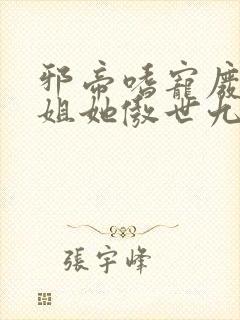 邪帝嗜寵廢
姐她傲世九
張宇峰